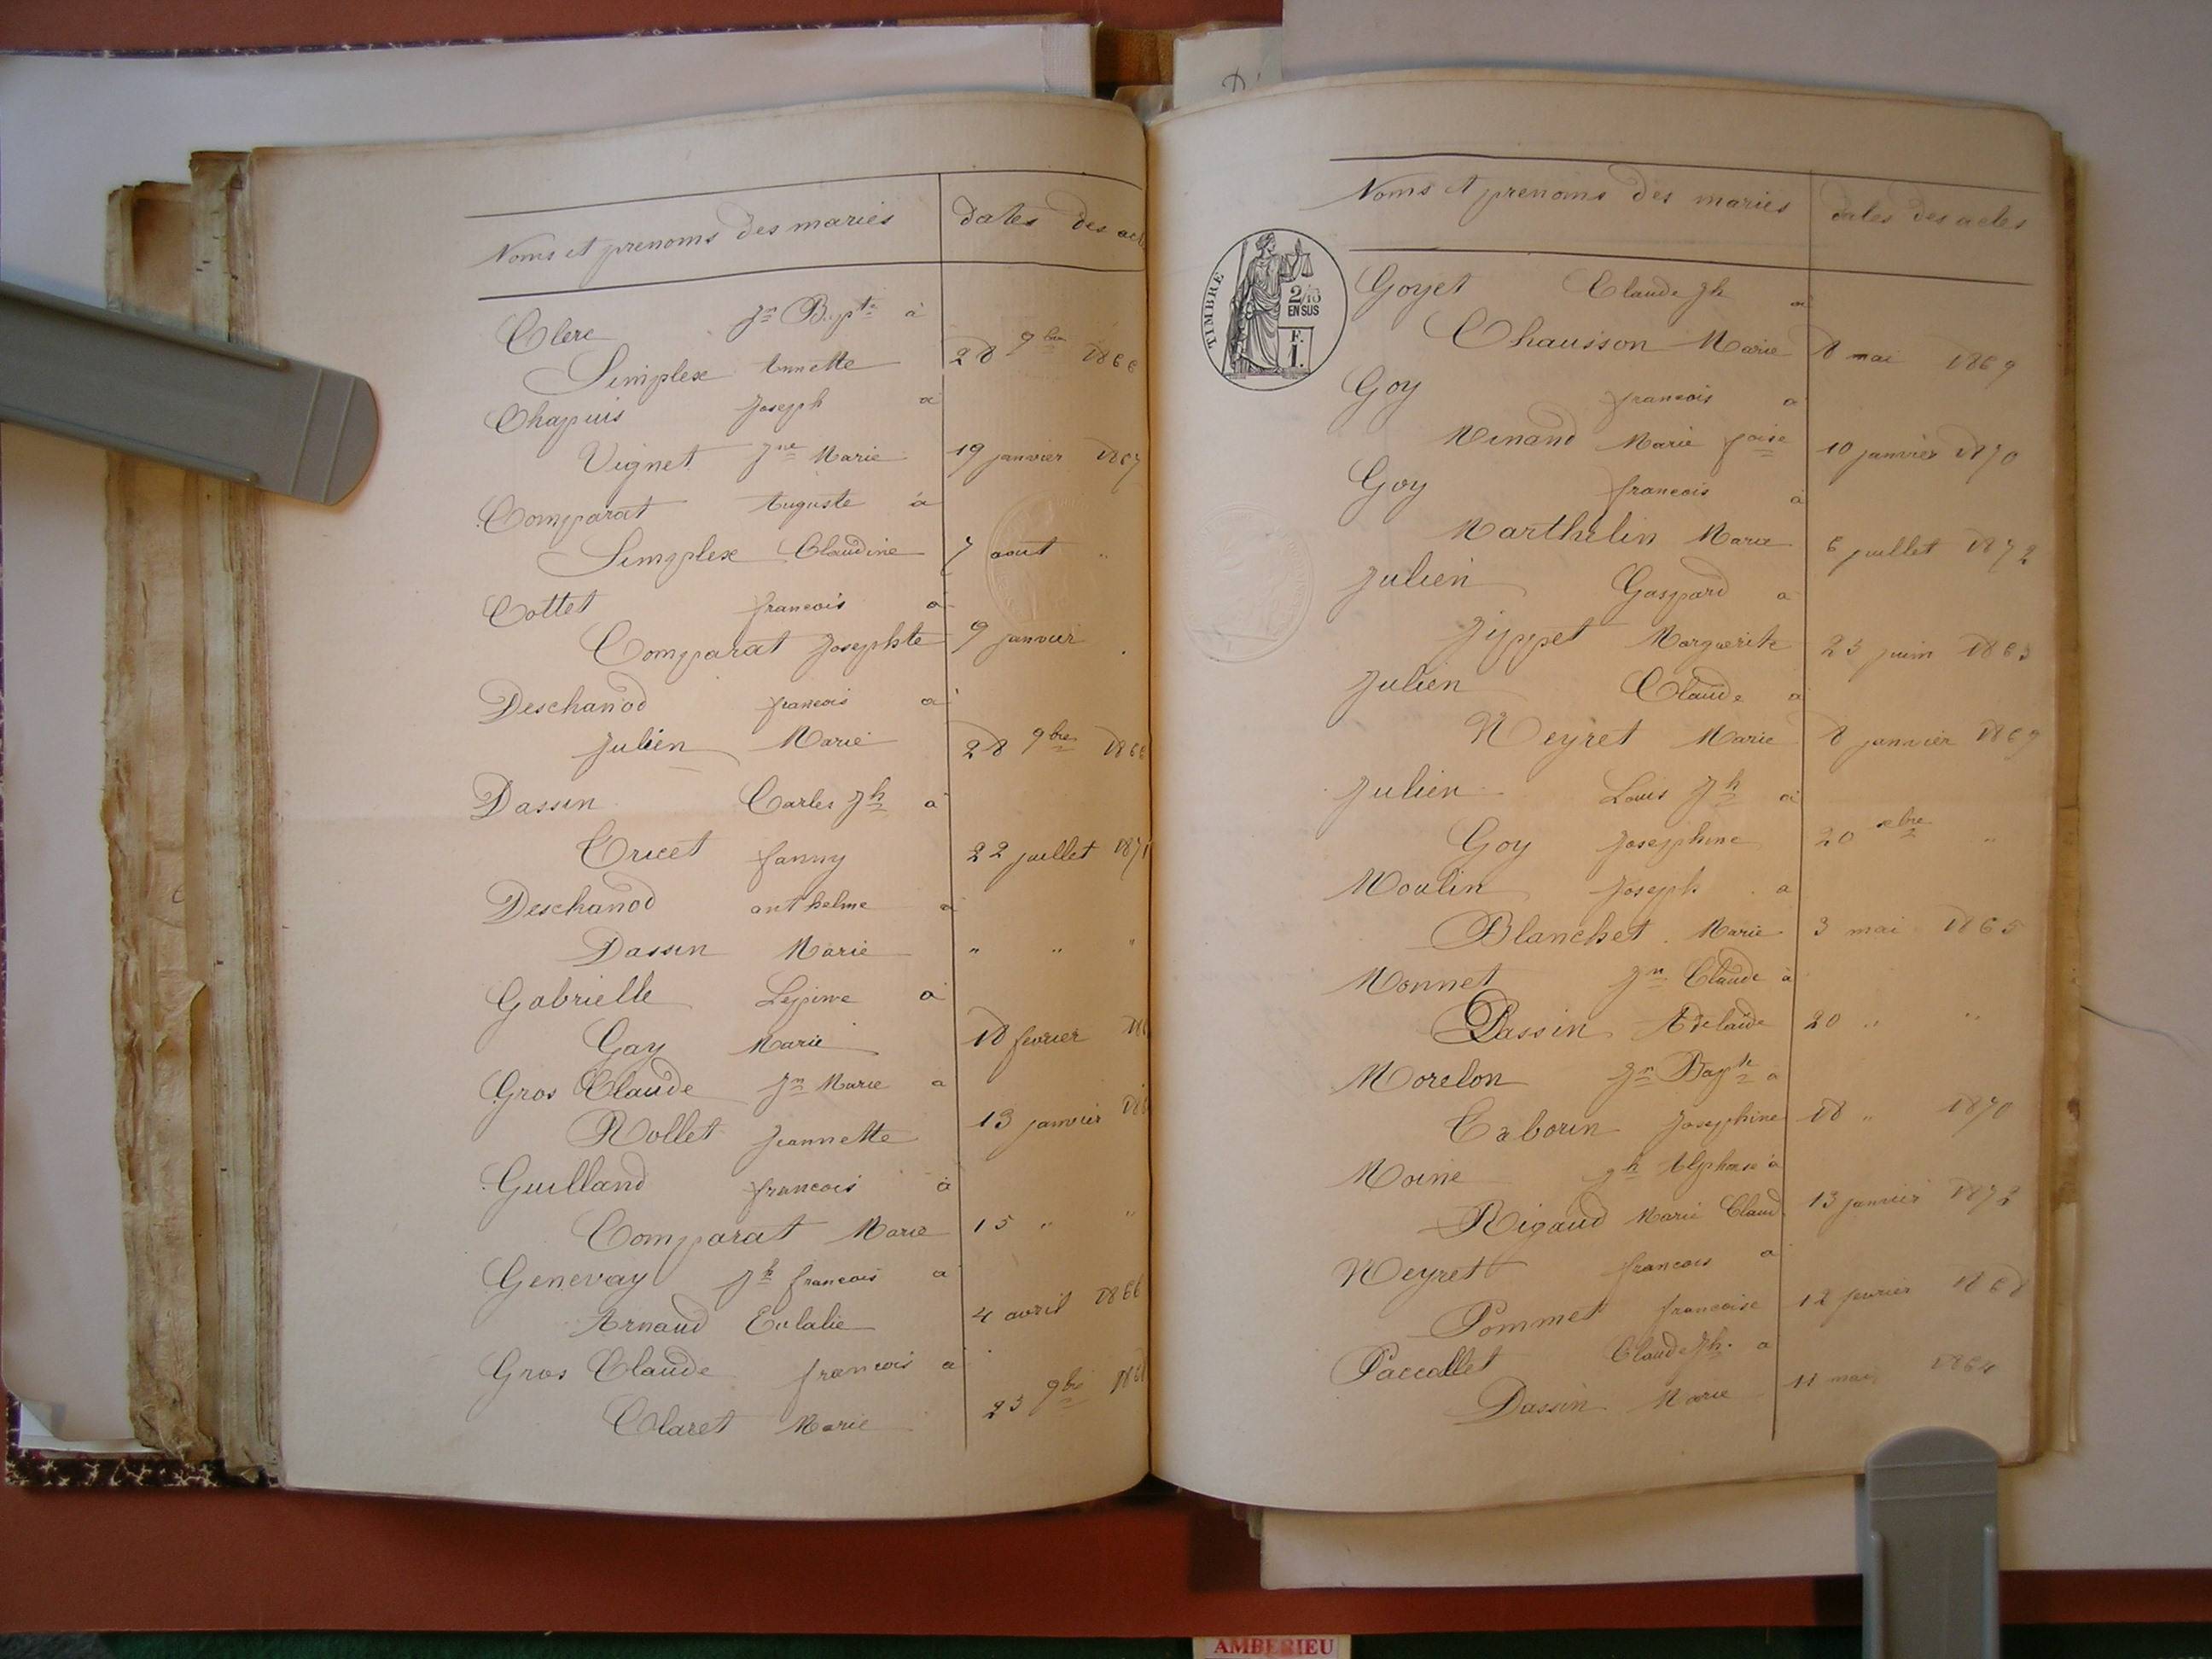 Noms et prenoms des mariés dates des act
Clerc Jn Bapte à
Simplex Annette 28 9bre 1866
Chapuis Joseph à
Vignet Jne Marie 19 janvier 1867
Comparat Auguste à
Simplex Claudine 7 aout "
Cottet francois à
Comparat Josephte 9 janvier
Deschanod francois à
Julien Marie 28 9bre 186
Dassin Carles Jh à
Cricet fanny 22 juillet 1871
Deschanod anthelme à
Dassin Marie " " "
Gabrielle Lepine à
Gay Marie 18 fevrier
Gros Claude Jn Marie à
Rollet Jeannette 13 janvier
Guilland francois à
Comparat Marie 15 " "
Genevay Jh francois à
Arnaud Eulalie 4 avril 1866
Gros Claude francois à
Claret Marie 23 9bre
Noms et prenoms des mariés dates des actes
TIMBRE
2/10
EN SUS
F.
1.
Goyet Claude Jh à
Chausson Marie 8 mai 1869
Goy francois à
Menand Marie foise 10 janvier 1870
Goy francois à
Marthelin Marie 6 juillet 1872
Julien Gaspard à
Jippet Marguerite 23 juin 1863
Julien Claude à
Neyret Marie 8 janvier 1869
Julien Louis Jh à
Goy Josephine 20 "
Moulin Joseph à
Blanchet Marie 3 mai 1865
Monnet Jn Claude à
Dassin Adelaïde 20 " "
Morelon Jn Bapte à
Taborin Josephine 18 " 1870
Moine Jh Alphonse à
Rigaud Marie Claud 13 janvier 1872
Neyret francois à
Pommet francoise 12 fevrier 1868
Paccallet Claude Jh. à
Dassin Marie 11 mai 1864
AMBERIEU